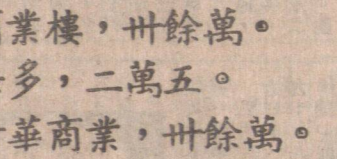 業樓，卅餘萬。
多，二萬五。
華商業，卅餘萬。